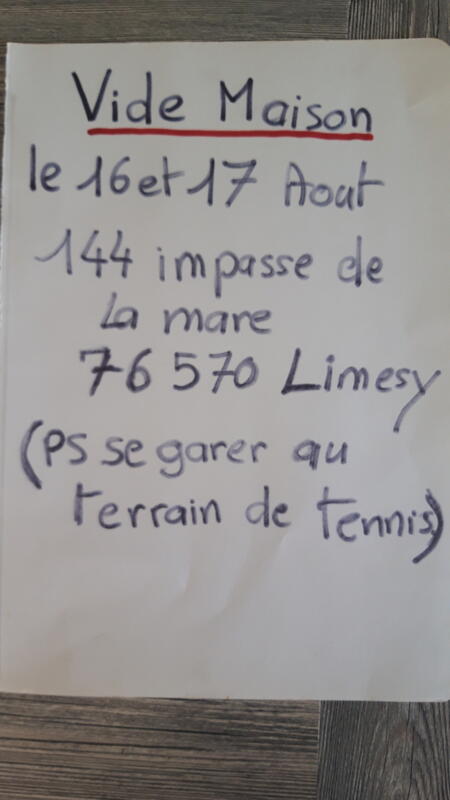 Vide Maison
le 16 et 17 Aout
144 impasse de
La mare
76 570 Limesy
(PS se garer au
terrain de tennis)